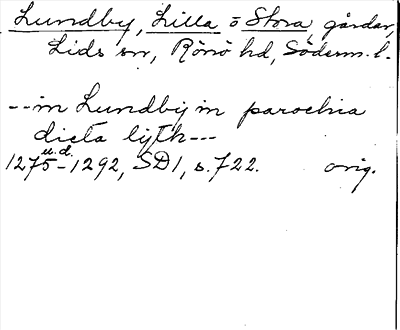 Lundby, Lilla o Stora, gårdar,
Lids sn, Rönö hd, Söderm. l.
--in Lundby in parochia
dicta lijth---
u.d.
1275-1292, SD1, s. 722. orig.